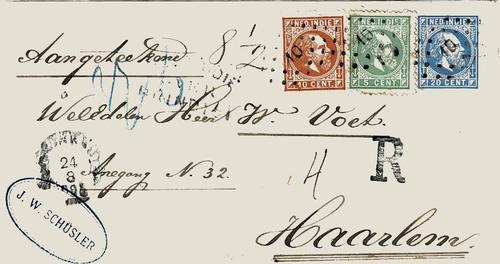 Aangeteekend 8 1/2
NED. INDIE NED. INDIE NED. INDIE
10 CENT. 5 CENT 20 CENT
10 15 10
Weledelen Heer W. Voet
24
8
Anegang N. 32.
4
R
J. W. SCHÜSLER
Haarlem.